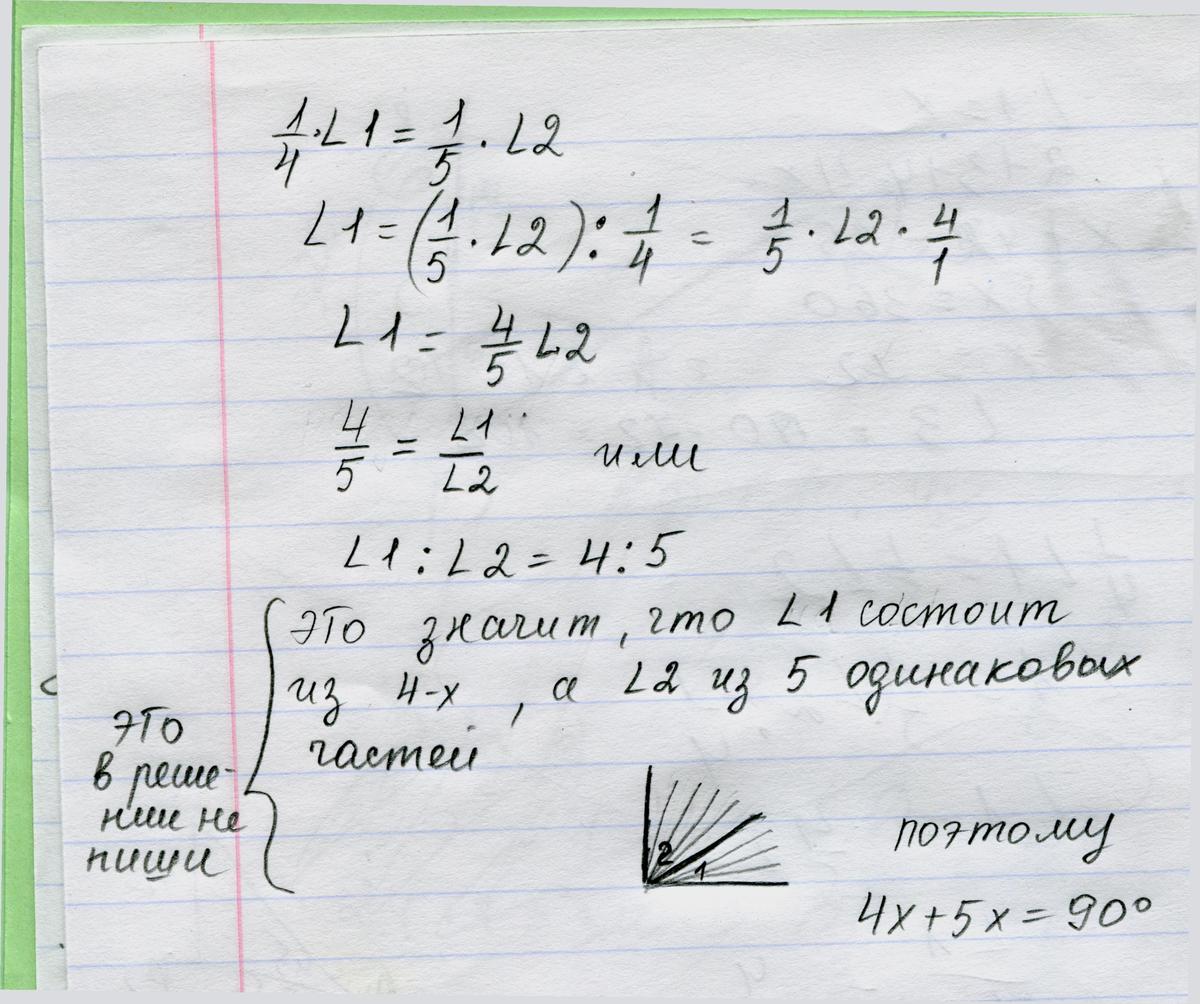 1/4 · ∠1 = 1/5 · ∠2
∠1 = (1/5 · ∠2) : 1/4 = 1/5 · ∠2 · 4/1
∠1 = 4/5 ∠2
4/5 = ∠1/∠2 или
∠1 : ∠2 = 4 : 5
это значит, что ∠1 состоит
из 4-х, а ∠2 из 5 одинаковых
частей
это
в реше-
нии не
пиши
2
1
поэтому
4x + 5x = 90°